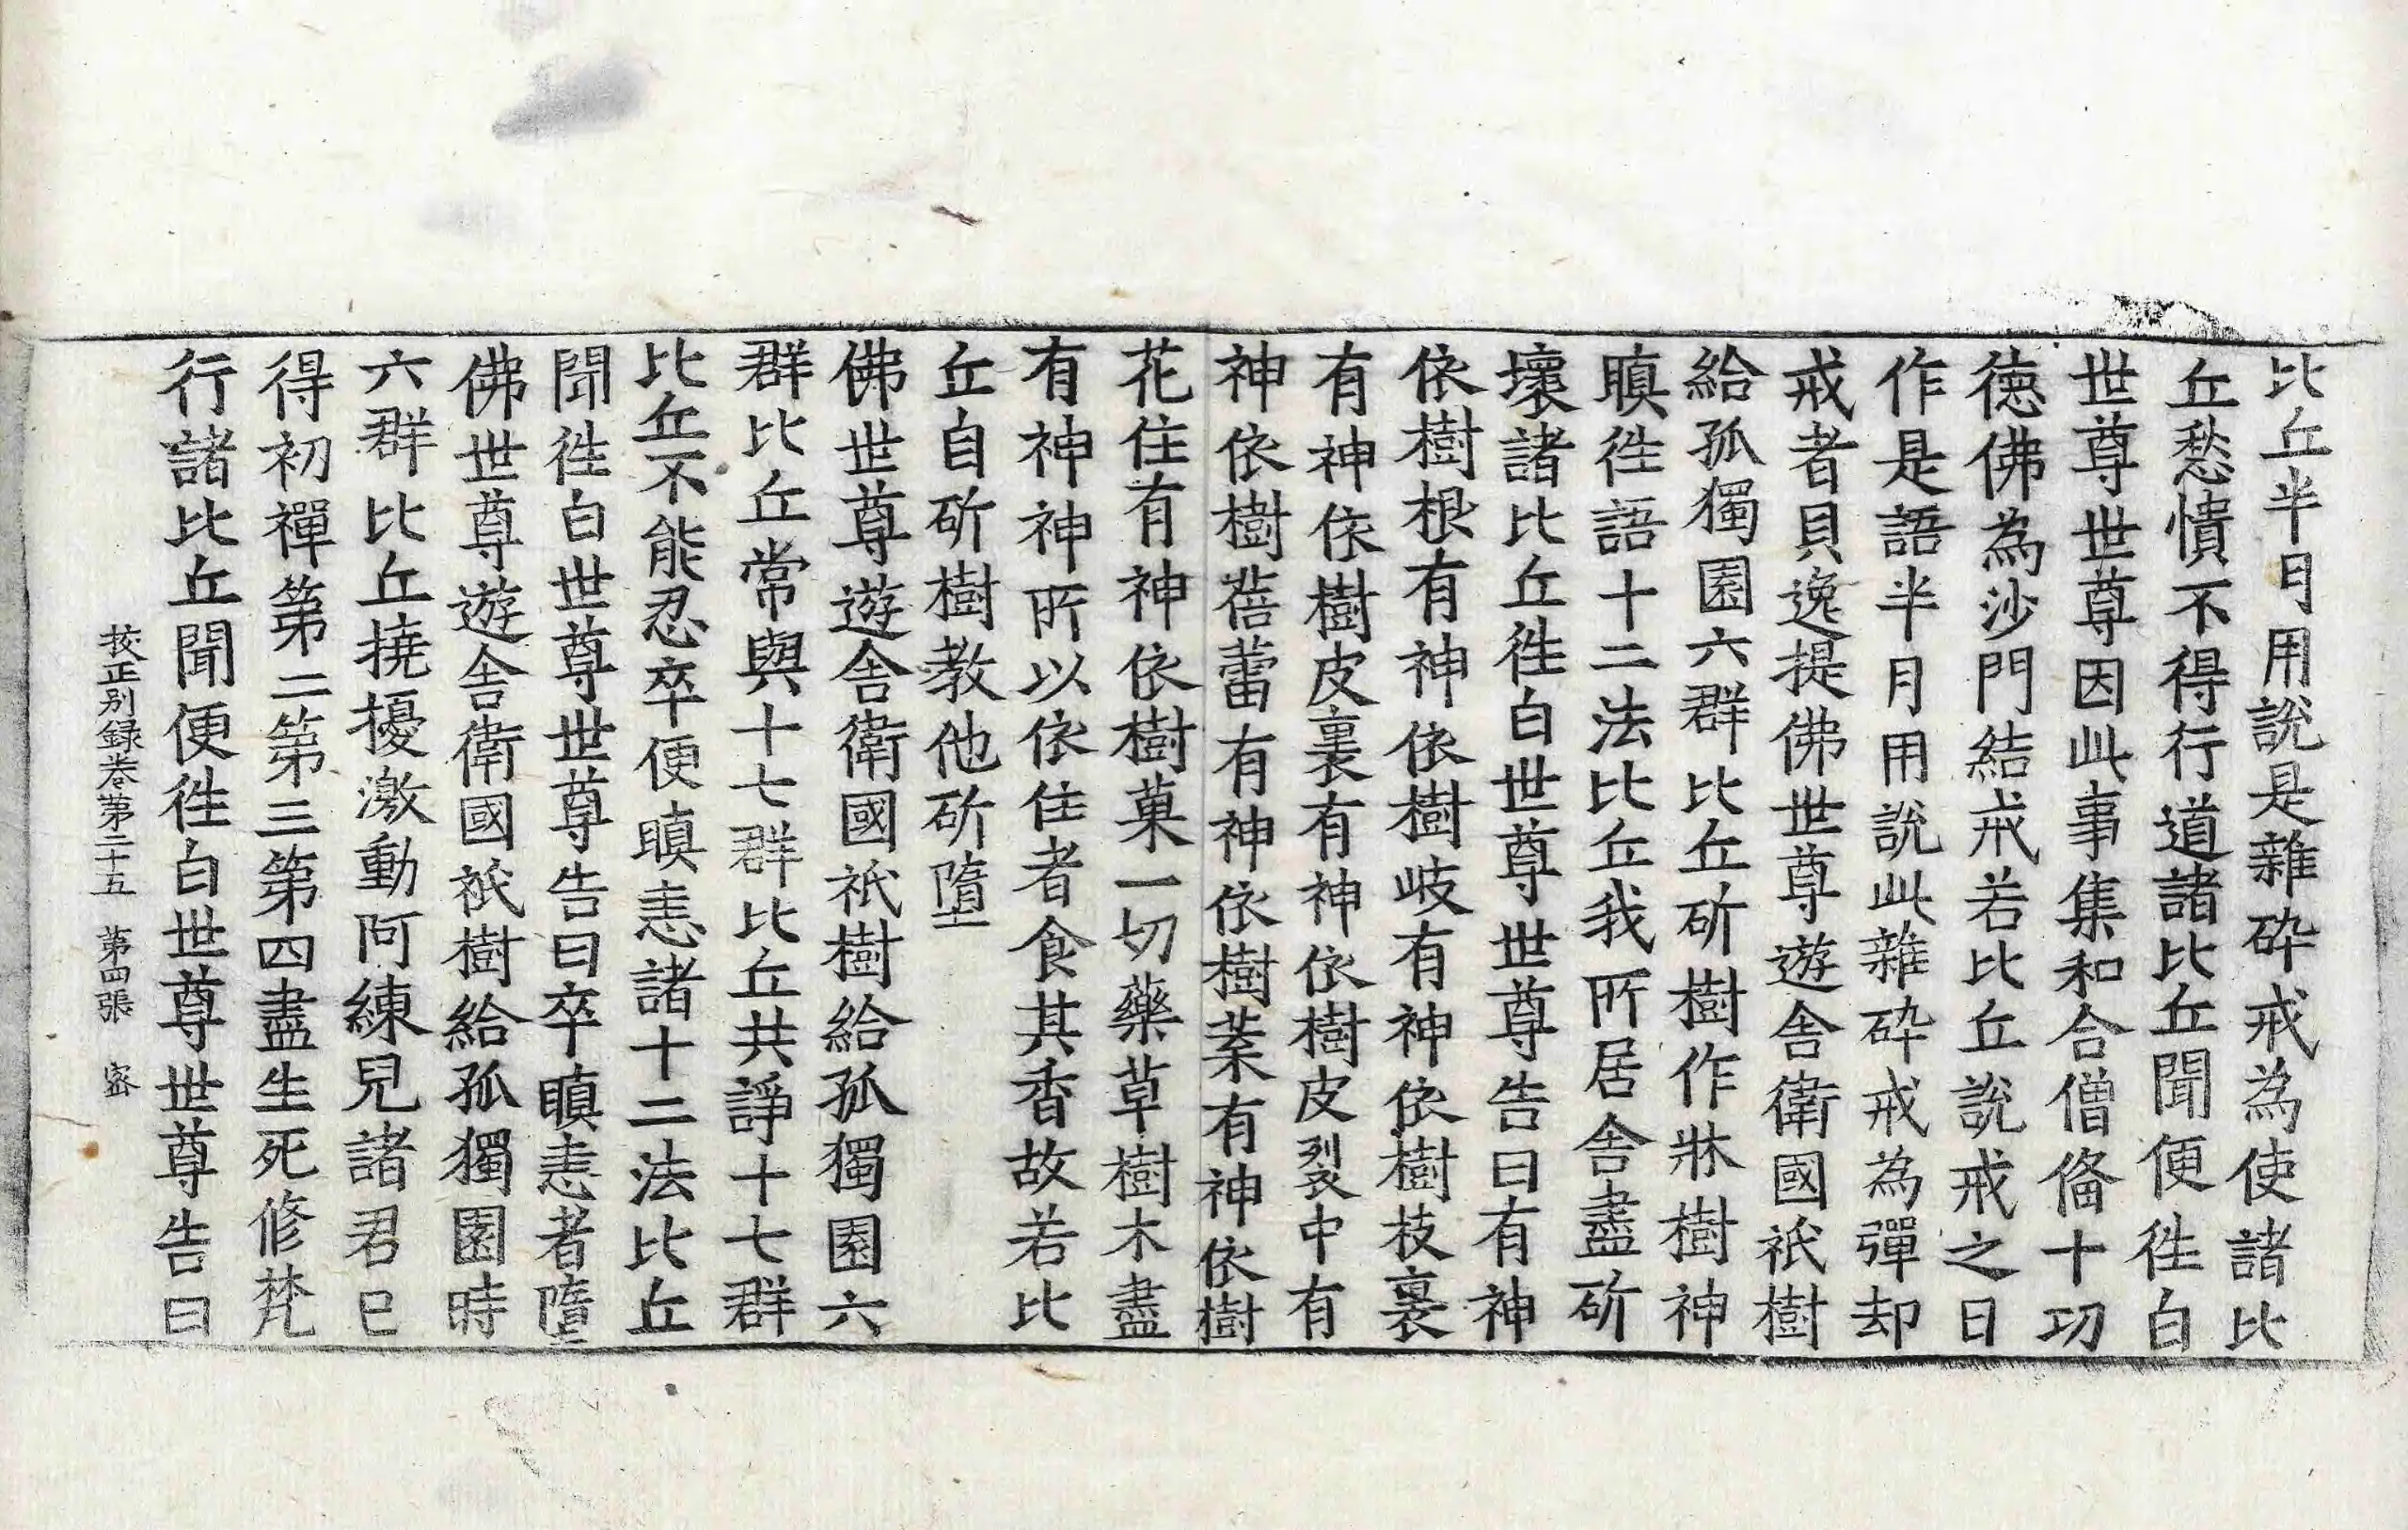 比丘半月用說是雜碎戒為使諸比
丘愁憒不得行道諸比丘聞便徃白
世尊世尊因此事集和合僧俻十功
德佛為沙門結戒若比丘說戒之日
作是語半月用說此雜碎戒為彈却
戒者貝逸提佛世尊遊舍衛國祇樹
給孤獨園六群比丘斫樹作牀樹神
瞋徃語十二法比丘我所居舍盡斫
壞諸比丘徃白世尊世尊告曰有神
依樹根有神依樹岐有神依樹枝裏
有神依樹皮裏有神依樹皮裂中有
神依樹蓓蕾有神依樹葉有神依樹
花住有神依樹菓一切藥草樹木盡
有神神所以依住者食其香故若比
丘自斫樹教他斫墮
佛世尊遊舍衛國祇樹給孤獨園六
群比丘常與十七群比丘共諍十七群
比丘不能忍卒便瞋恚諸十二法比丘
聞徃白世尊世尊告曰卒瞋恚者墮
佛世尊遊舍衛國祇樹給孤獨園時
六群比丘撓擾激動阿練兒諸君已
得初禪第二第三第四盡生死修梵
行諸比丘聞便徃白世尊世尊告曰
挍正别録卷第二十五 第四張 密